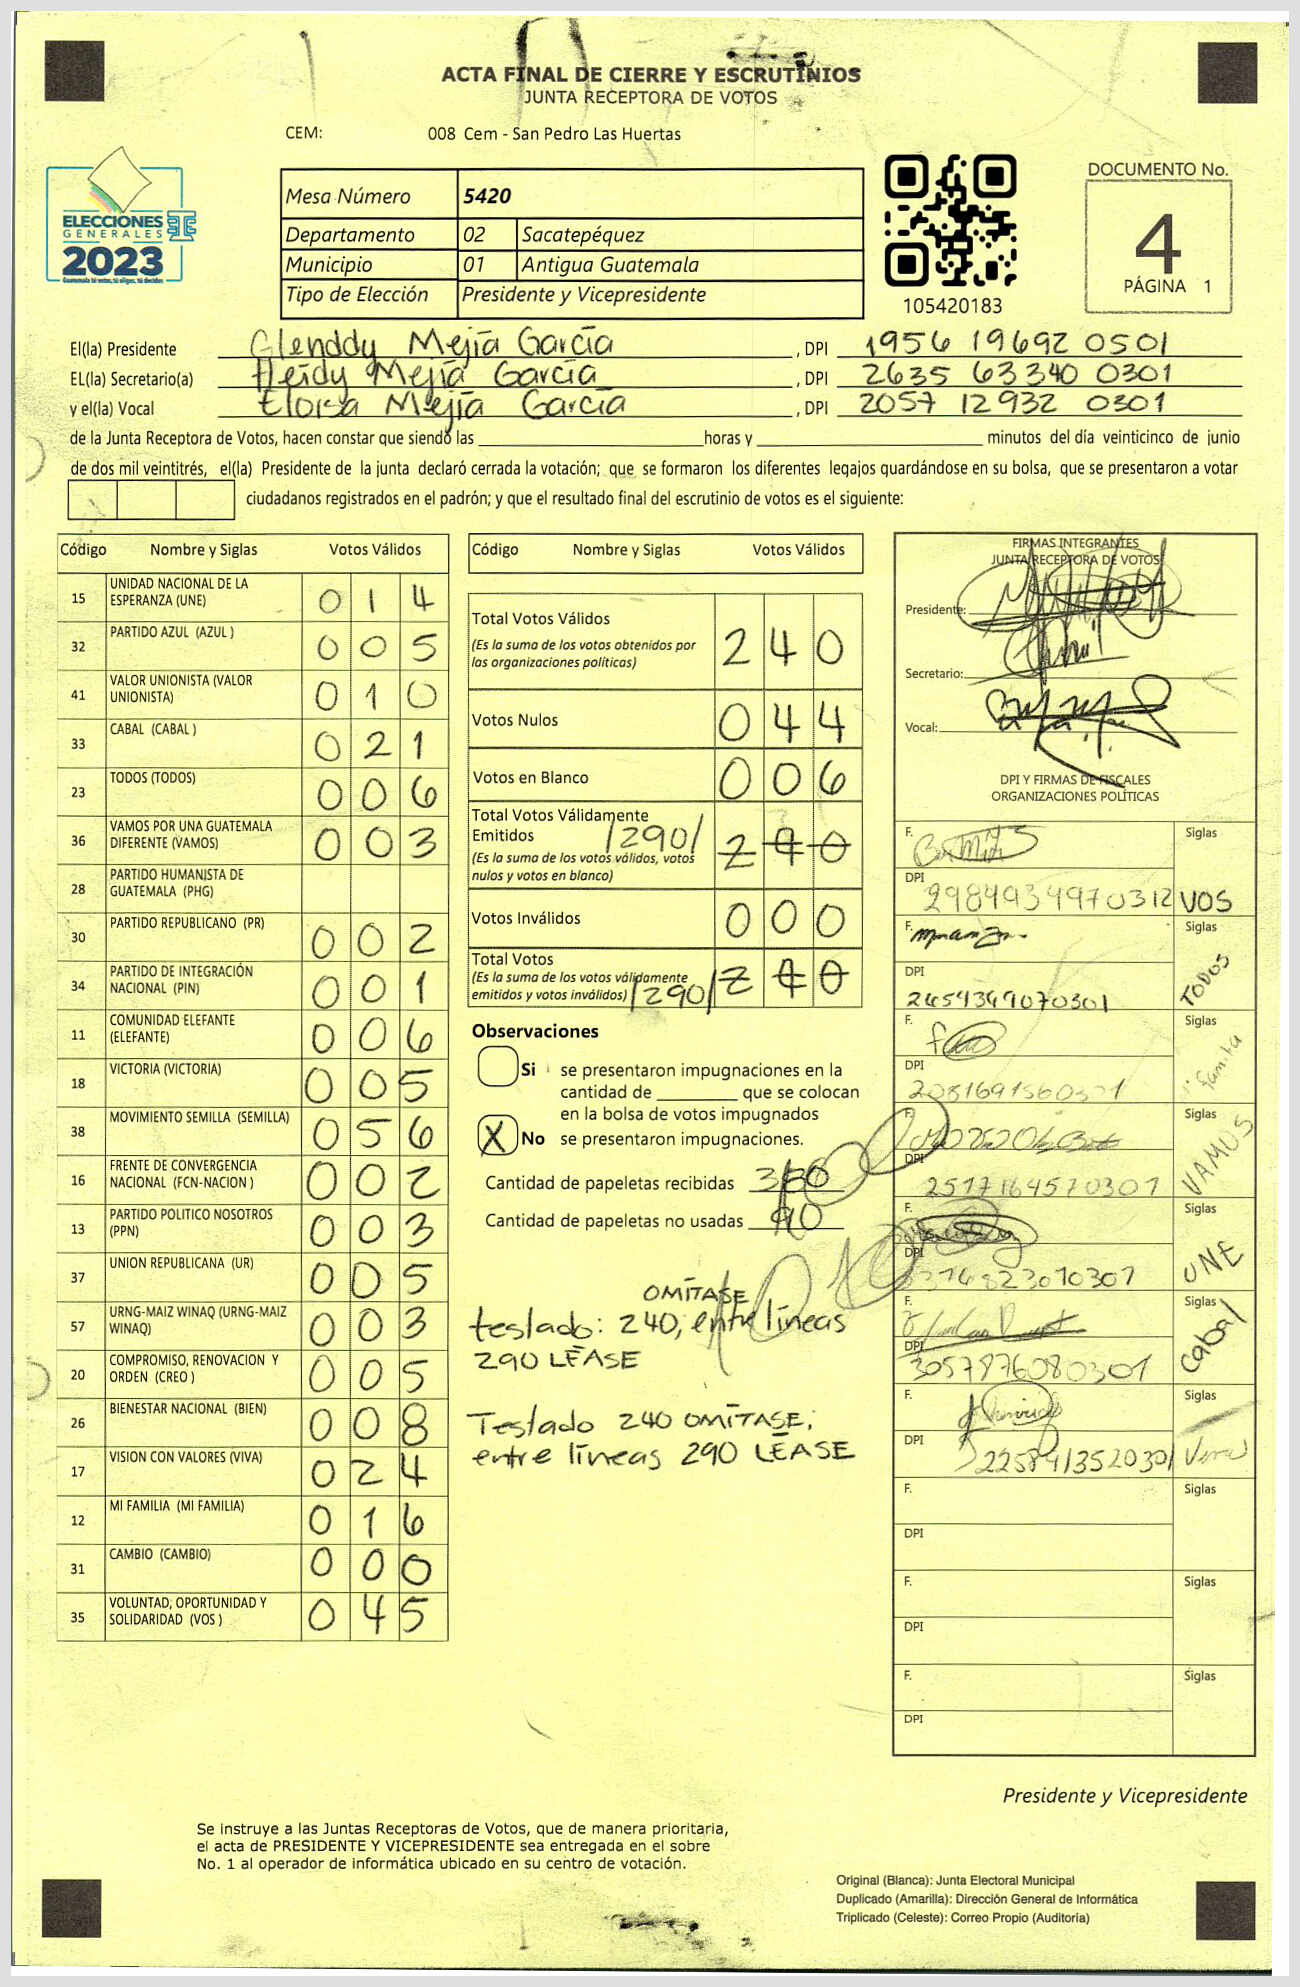 ACTA FINAL DE CIERRE Y ESCRUTINIOS
JUNTA RECEPTORA DE VOTOS
CEM: 008 Cem - San Pedro Las Huertas
ELECCIONES
GENERALES
2023
Guatemala tú votas, tú eliges, tú decides
Mesa Número 5420
Departamento 02 Sacatepéquez
Municipio 01 Antigua Guatemala
Tipo de Elección Presidente y Vicepresidente
105420183
DOCUMENTO No.
4
PÁGINA 1
El(la) Presidente Glenddy Mejía García , DPI 1956 19692 0501
EL(la) Secretario(a) Heidy Mejía García , DPI 2635 63340 0301
y el(la) Vocal Eloisa Mejía García , DPI 2057 12932 0301
de la Junta Receptora de Votos, hacen constar que siendo las horas y minutos del día veinticinco de junio
de dos mil veintitrés, el(la) Presidente de la junta declaró cerrada la votación; que se formaron los diferentes legajos guardándose en su bolsa, que se presentaron a votar
ciudadanos registrados en el padrón; y que el resultado final del escrutinio de votos es el siguiente:
Código Nombre y Siglas Votos Válidos
15 UNIDAD NACIONAL DE LA ESPERANZA (UNE) 0 1 4
32 PARTIDO AZUL (AZUL ) 0 0 5
41 VALOR UNIONISTA (VALOR UNIONISTA) 0 1 0
33 CABAL (CABAL ) 0 2 1
23 TODOS (TODOS) 0 0 6
36 VAMOS POR UNA GUATEMALA DIFERENTE (VAMOS) 0 0 3
28 PARTIDO HUMANISTA DE GUATEMALA (PHG)
30 PARTIDO REPUBLICANO (PR) 0 0 2
34 PARTIDO DE INTEGRACIÓN NACIONAL (PIN) 0 0 1
11 COMUNIDAD ELEFANTE (ELEFANTE) 0 0 6
18 VICTORIA (VICTORIA) 0 0 5
38 MOVIMIENTO SEMILLA (SEMILLA) 0 5 6
16 FRENTE DE CONVERGENCIA NACIONAL (FCN-NACION ) 0 0 2
13 PARTIDO POLITICO NOSOTROS (PPN) 0 0 3
37 UNION REPUBLICANA (UR) 0 0 5
57 URNG-MAIZ WINAQ (URNG-MAIZ WINAQ) 0 0 3
20 COMPROMISO, RENOVACION Y ORDEN (CREO ) 0 0 5
26 BIENESTAR NACIONAL (BIEN) 0 0 8
17 VISION CON VALORES (VIVA) 0 2 4
12 MI FAMILIA (MI FAMILIA) 0 1 6
31 CAMBIO (CAMBIO) 0 0 0
35 VOLUNTAD, OPORTUNIDAD Y SOLIDARIDAD (VOS ) 0 4 5
Código Nombre y Siglas Votos Válidos
Total Votos Válidos 2 4 0
(Es la suma de los votos obtenidos por
las organizaciones políticas)
Votos Nulos 0 4 4
Votos en Blanco 0 0 6
Total Votos Válidamente
Emitidos /290/ 2 4 0
(Es la suma de los votos válidos, votos
nulos y votos en blanco)
Votos Inválidos 0 0 0
Total Votos
(Es la suma de los votos válidamente
emitidos y votos inválidos) /290/ 2 4 0
Observaciones
Si se presentaron impugnaciones en la
cantidad de que se colocan
en la bolsa de votos impugnados
X No se presentaron impugnaciones.
Cantidad de papeletas recibidas 380
Cantidad de papeletas no usadas 90
OMÍTASE
testado: 240, entre líneas
290 LÉASE
Testado 240 OMÍTASE,
entre líneas 290 LÉASE
FIRMAS INTEGRANTES
JUNTA RECEPTORA DE VOTOS
Presidente:
Secretario:
Vocal:
DPI Y FIRMAS DE FISCALES
ORGANIZACIONES POLÍTICAS
F. Siglas
DPI 2984934970312 VOS
F. Siglas
DPI 2454349070301 TODOS
F. Siglas
DPI 2081691560301
F. Siglas
DPI 2517164570301 VAMOS
F. Siglas
DPI UNE
F. Siglas
DPI 3057876080301 Cabal
F. Siglas
DPI 2258413520301
F. Siglas
DPI
F. Siglas
DPI
F. Siglas
DPI
Presidente y Vicepresidente
Se instruye a las Juntas Receptoras de Votos, que de manera prioritaria,
el acta de PRESIDENTE Y VICEPRESIDENTE sea entregada en el sobre
No. 1 al operador de informática ubicado en su centro de votación.
Original (Blanca): Junta Electoral Municipal
Duplicado (Amarilla): Dirección General de Informática
Triplicado (Celeste): Correo Propio (Auditoría)